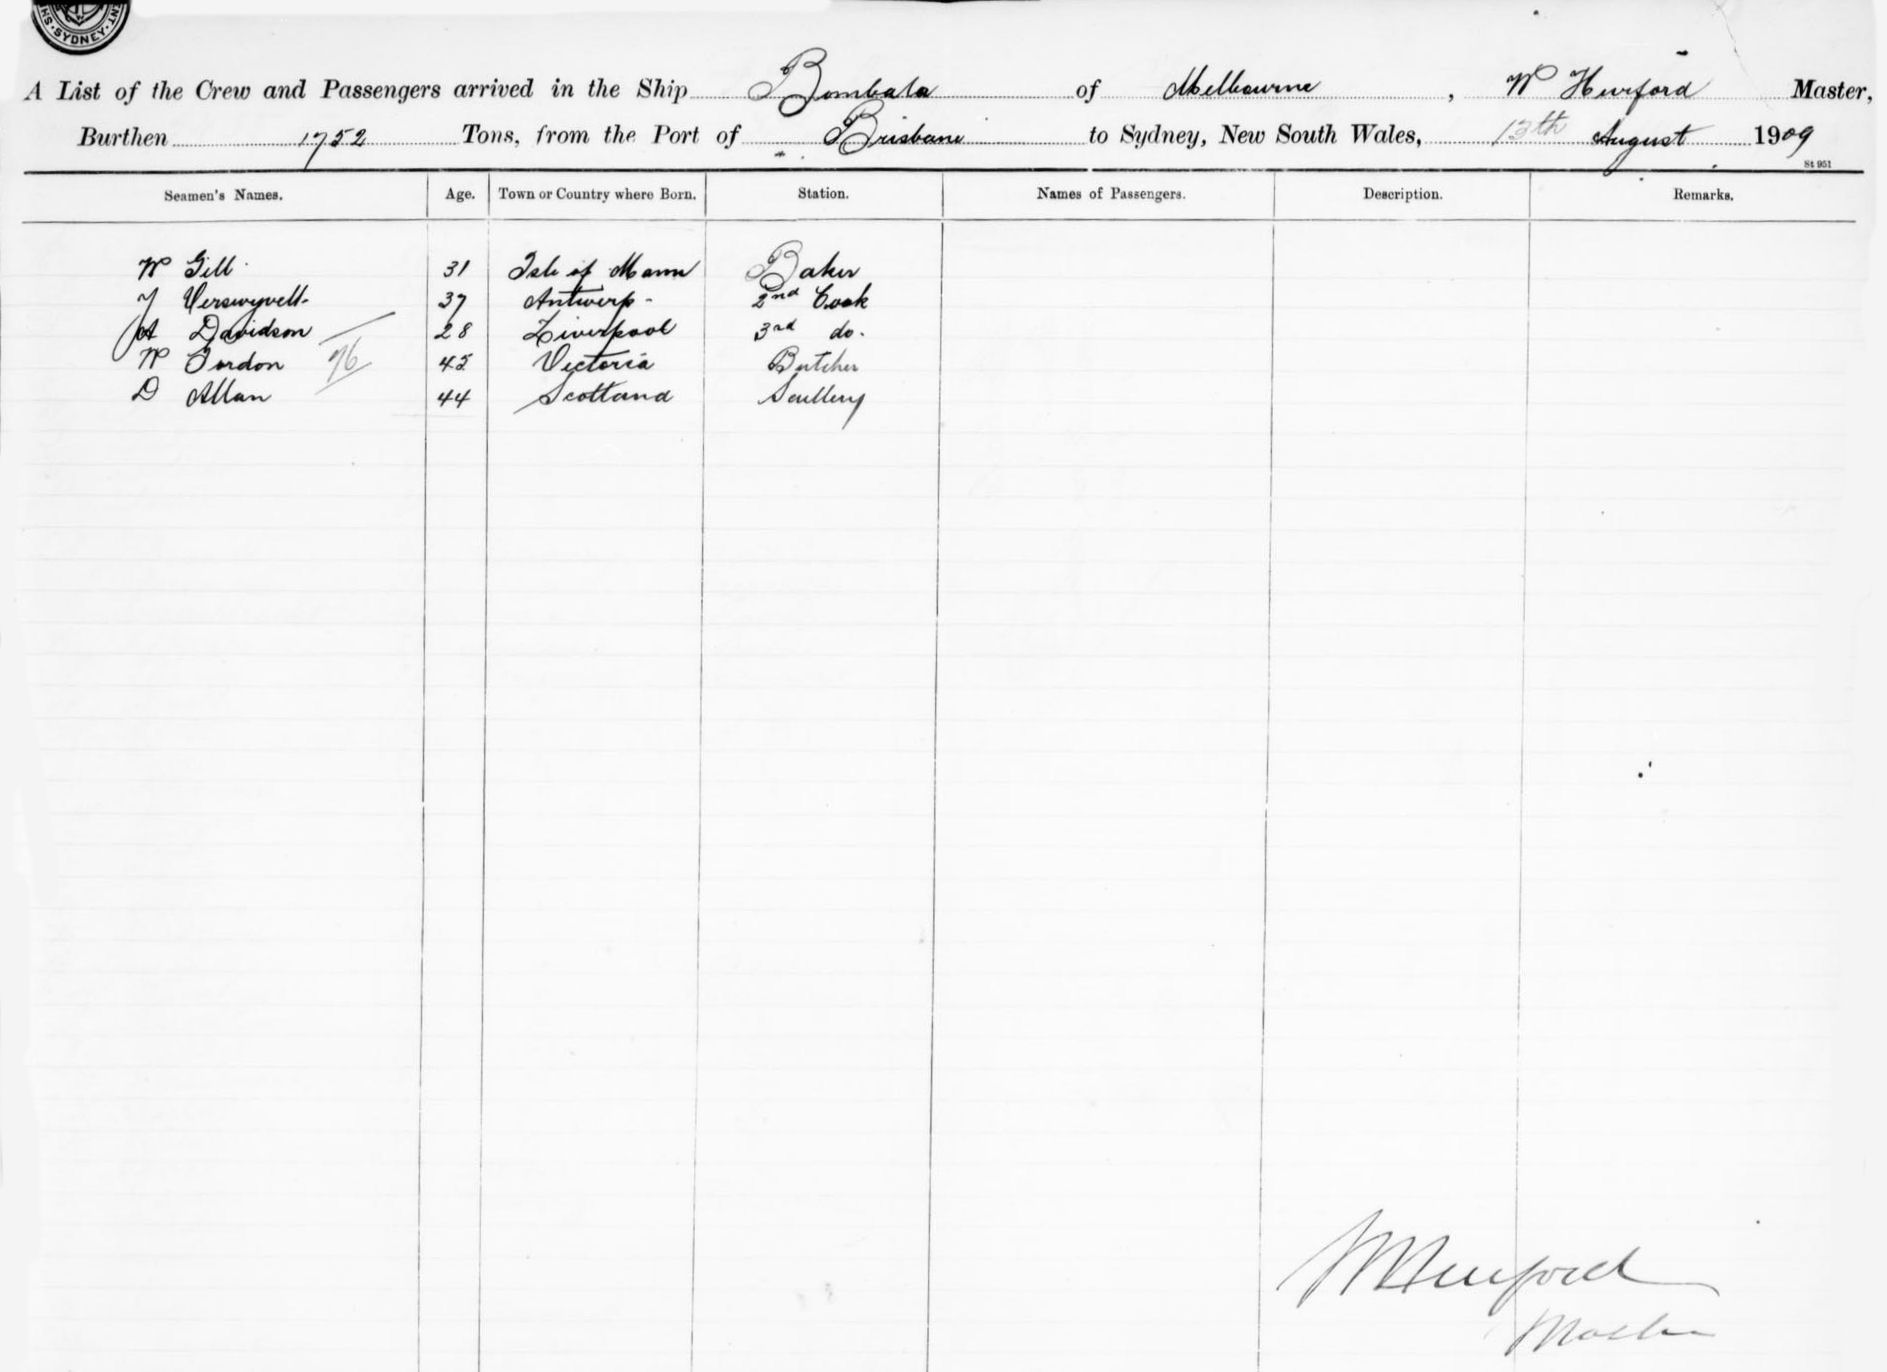 SYDNEY
A List of the Crew and Passengers arrived in the Ship Bombala of Melbourne, W Hurford Master,
Burthen 1752 Tons, from the Port of Brisbane to Sydney, New South Wales, 13th August 1909
St 951
Seamen's Names. Age. Town or Country where Born. Station. Names of Passengers. Description. Remarks.
W Gill 31 Isle of Mann Baker
J Verswyvelt 37 Antwerp - 2nd Cook
A Davidson 28 Liverpool 3rd do.
W Gordon 76 45 Victoria Butcher
D Allan 44 Scotland Scullery
W Hurford
Master